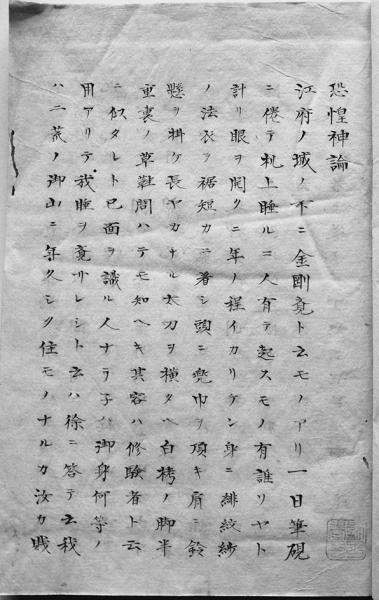 恐惶神論
江府ノ城ノ下ニ金剛竟ト云モノアリ一日筆硯
ニ倦テ机上睡ルニ人有テ起スモノ有誰リヤト
計リ眼ヲ開クニ年ノ程イカリケン身ニ緋紋紗
ノ法衣ヲ裾短カニ着シ頭ニ兜巾ヲ頂キ肩ニ鈴
懸ヲ掛ケ長ヤカナル太刀ヲ横タヘ白栲ノ脚半
重裏ノ草鞋問ハテモ知ヘキ其容ハ修験者ト云
ニ似タレト已面ヲ識ル人ナラ子ハ御身何等ノ
用アリテ我睡ヲ竟サレシト云ハ徐ニ答テ云我
ハ二荒ノ御山ニ年久シク住モノナルカ汝カ賎